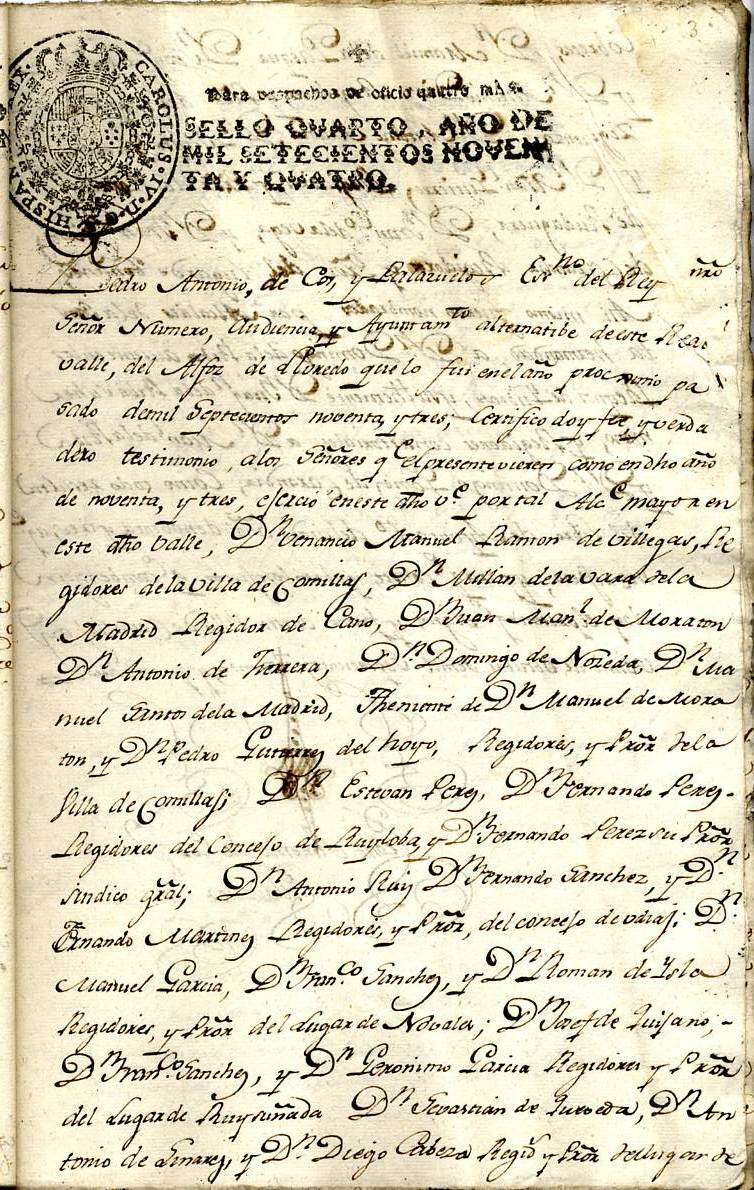 3.
CAROLUS·IV·D·G·HISPAN REX·
Para despachos de oficio quatro mrs.
SELLO QVARTO, AÑO DE
MIL SETECIENTOS NOVEN
TA Y QVATRO.
Pedro Antonio, de Cos, y Palazuelos Esnº del Rey nro
Señor Numero, Audiencia, y Ayuntamto alternatibe de este Real
valle, del Alfoz de Lloredo que lo fui en el año proc nimo pa
sado de mil Septecientos noventa, y tres; Certifico doy fee, y verda
dero testimonio, a los Señores qe el presente vieren como en dho año
de noventa, y tres, ejerció en este dho Ve. por tal Alce mayor en
este dho valle, Dn Venancio Manuel Ramon de villegas, Re
gidores de la villa de Comillas, Dn Millan de la vara de la
Madrid Regidor de Cano, Dn Juan Manl de Moraton
Dn Antonio de Herrera, Dn Domingo de Noreda, Dn Ma
nuel Santos de la Madrid, Theniente de Dn Manuel de Mora
ton, y Dn Pedro Gutierrez del hoyo, Regidores, y Pror de la
Villa de Comillas; Dn Estevan Perez, Dn Fernando Perez-
Regidores del Concejo de Ruyloba, y Dn Fernando Perez su Pror
sindico gral; Dn Antonio Ruiz Dn Fernando Sanchez, y Dn
Fernando Martinez Regidores, y Pror, del concejo de udias; Dn
Manuel Garcia, Dn Franco Sanchez, y Dn Roman de Ysla
Regidores, y Pror del Lugar de Novales; Dn Josef de Quijano,-
Dn Franco Sanchez, y Dn Geronimo Garcia Regidores y Pror
del Lugar de Ruyseñada Dn Sevastian de Quroeda, Dn An
tonio de Linares, y Dn Diego Cabeza Regis y Pror del lugar de